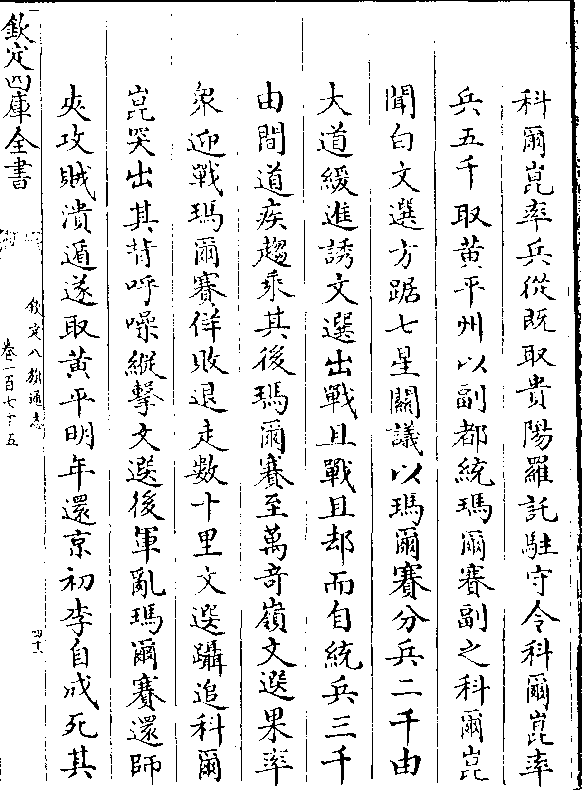 科爾崑率兵從既取貴陽羅託駐守令科爾崑率
兵五千取黄平州以副都統瑪爾賽副之科爾崑
聞白文選方踞七星關議以瑪爾賽分兵二千由
大道緩進誘文選出戰且戰且却而自統兵三千
由間道疾趨乘其後瑪爾賽至萬竒嶺文選果率
衆迎戰瑪爾賽佯敗退走數十里文選躡追科爾
崑突出其背呼噪縱擊文選後軍亂瑪爾賽還師
夾攻賊潰遁遂取黄平明年還京初李自成死其
欽定四庫全書
欽定八旗通志
卷一百七十五